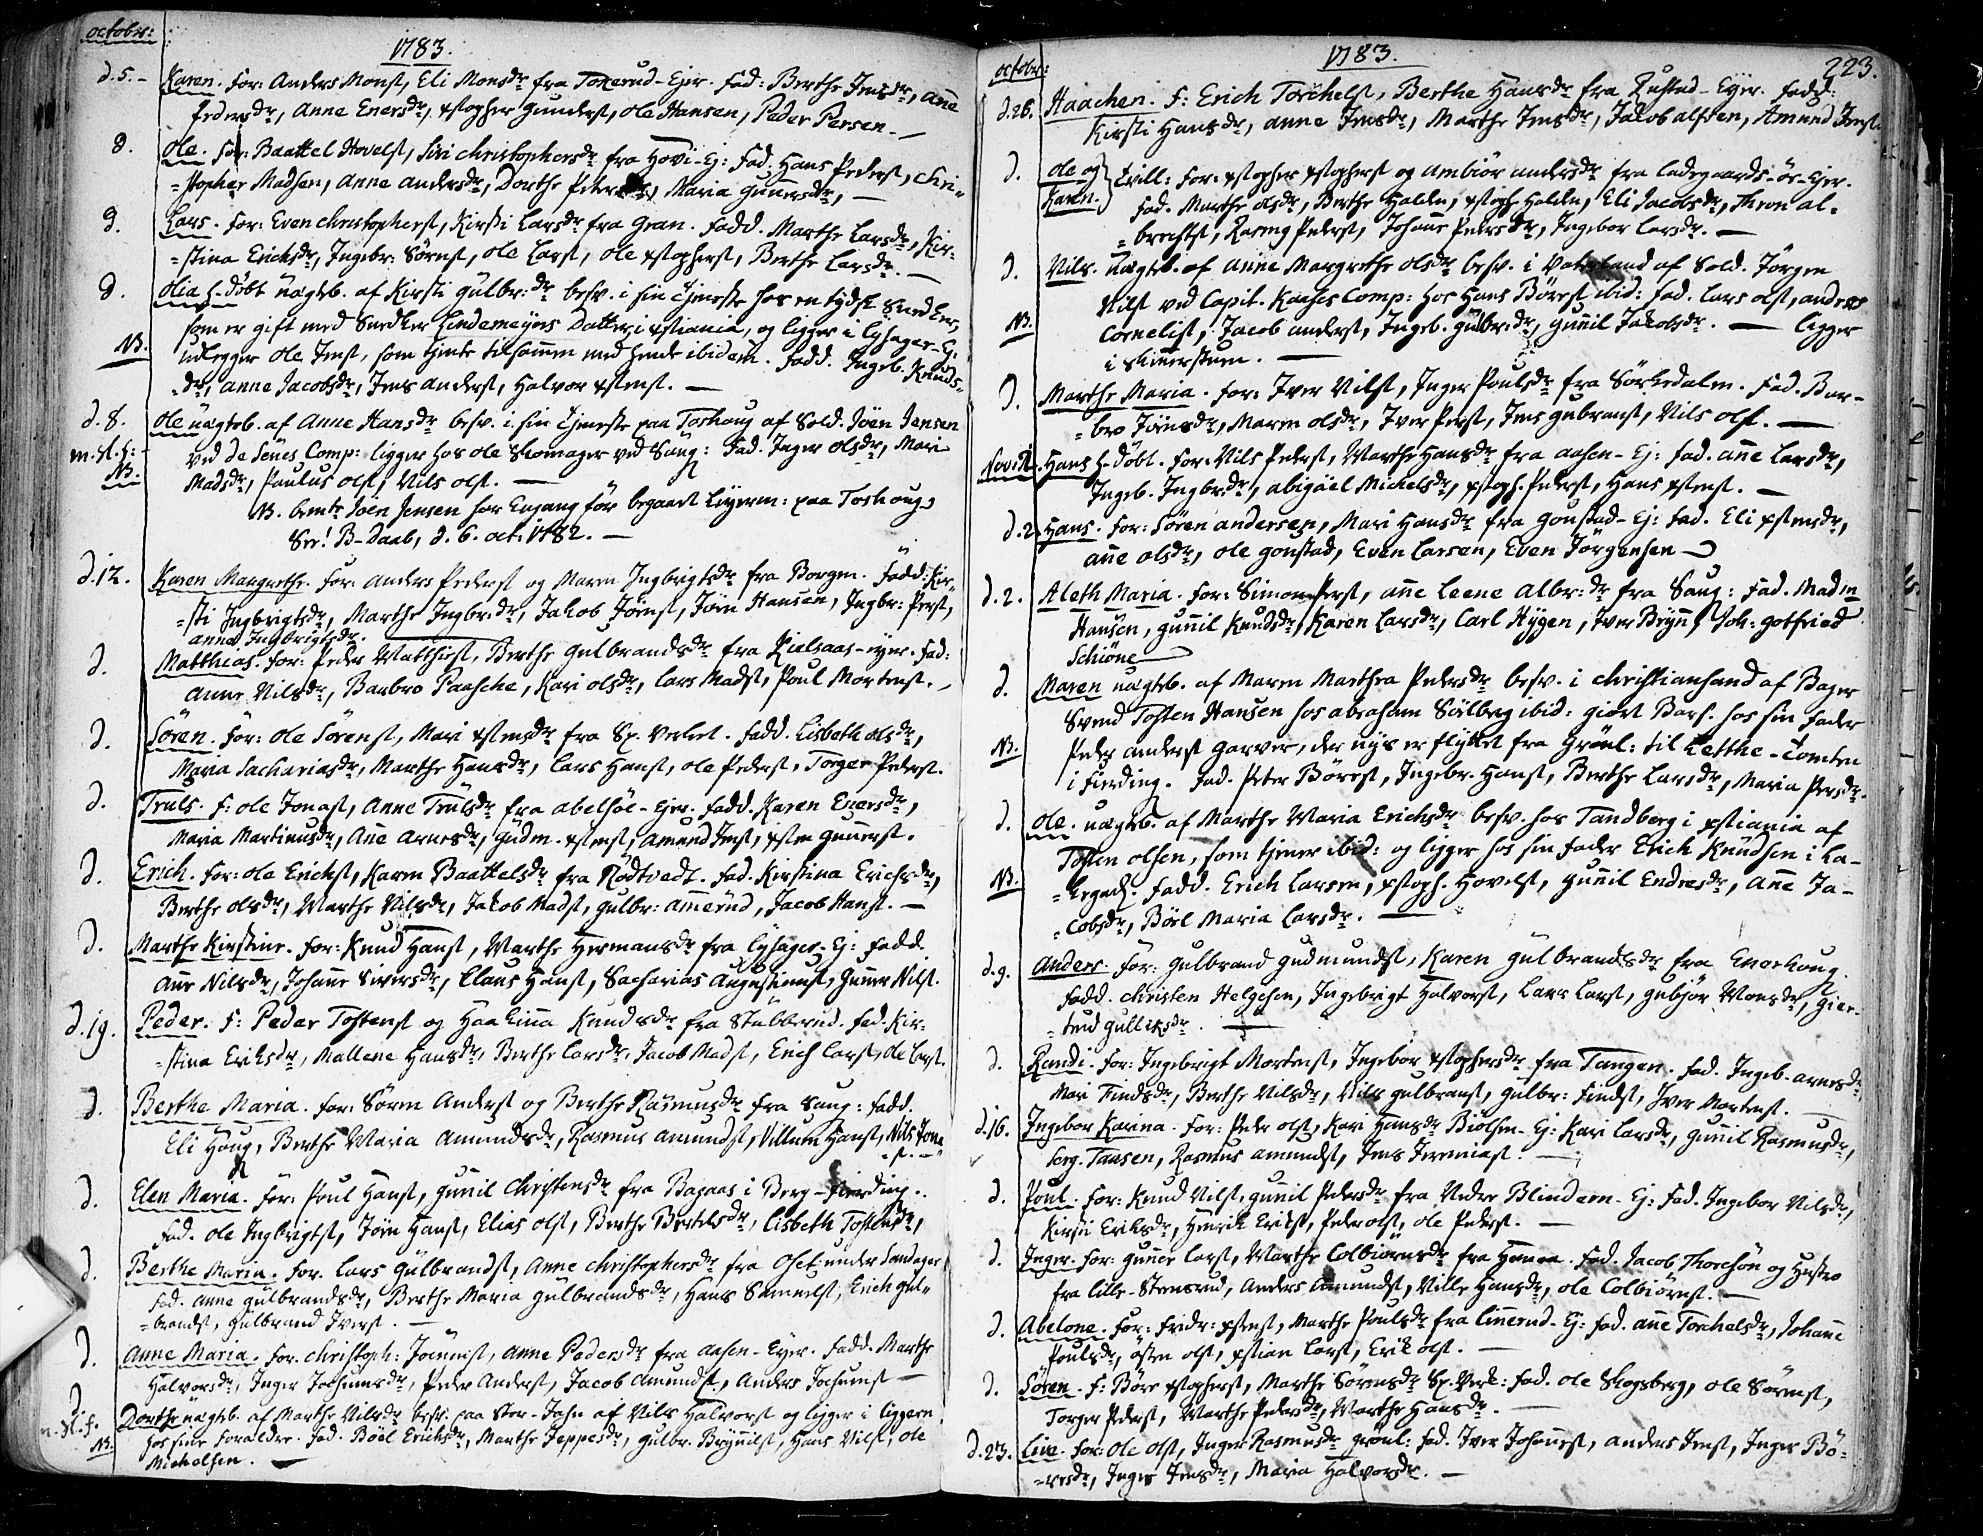 octobr:
1783.
d. 5. - Karen. For: Anders Monst, Eli Monsdr fra Tokerud-Ejer. Fad: Berthe Jensdr, Anne
Pedersdr, Anne Enersdr, xstopher Gunderst, Ole Hansen, Peder Persen.
d. Ole. For: Baattel Hovelst, Siri Christophersdr fra Hovi-Ej: Fad. Hans Pederst, Chri-
=stopher Madsen, Anne Andersdr, Dorthe Pedersdr, Maria Gunersdr,
d. Lars. For: Even Christopherst, Kirsti Larsdr fra Gran. Fadd. Marthe Larsdr, Kir-
=stina Erichsdr, Ingebr: Sörenst, Ole Larst, Ole xstopherst, Berthe Larsdr.
d. Olia h-döbt uægteb. af Kirsti Gulbr:dr besv. i sin Tjeneste hos en tydsk Snedker,
som er gift med Snedker Lindemeyers Datter i xstiania, og ligger i Lysager-Ej:
NB. udlegger Ole Jenst, som tjente tilsammen med hende ibidem. Fadd. Ingeb. Knuds-
dr, Anne Jacobsdr, Jens Anderst, Halvor xstenst.
d. 8. Ole uægteb. af Anne Hansdr besv. i sin Tjeneste paa Toshoug af Sold. Joen Jensen
m. st. f: ved de Seues Comp: ligger hos Ole Skomager ved Saug: Fad. Inger Olsdr, Mari
NB. Madsdr, Paulus Olst, Nils Olst.
NB. bemte Joen Jensen har Engang för begaaet Leyerm: paa Toshoug,
See! B-Daab, d. 6. oct. 1782.
d. 12. Karen Margrethe. For: Anders Pederst og Maren Ingbrigtsdr fra Borgen. Fadd: Kir-
=sti Ingbrigtsdr, Marthe Ingbr:dr, Jakob Jörnst, Jörn Hansen, Ingbr: Perst,
Anne Ingbrigtsdr.
d. Matthias. For: Peder Matthisst, Berthe Gulbrandsdr fra Kielsaas-eyer. Fad:
Anne Nilsdr, Barbro Paasche, Kari Olsdr, Lars Madst, Poul Mortenst.
d. Sören. For: Ole Sörenst, Mari xstensdr fra Sp. Verket. Fadd. Lisbeth Olsdr,
Maria Sachariasdr, Marthe Hansdr, Lars Hanst, Ole Pederst, Torger Pederst.
d. Truls. F: Ole Jonast, Anne Trulsdr fra Abelsöe-Ejer. Fadd. Karen Enersdr,
Maria Martinusdr, Ane Arnesdr, Gudm. xstenst, Amund Jenst, xsten Gunerst.
d. Erich. For: Ole Erichst, Karen Baattelsdr fra Rödtvedt. Fad. Kirstina Erichsdr,
Berthe Olsdr, Marthe Nilsdr, Jakob Madst, Gulbr: Amerud, Jacob Hanst.
d. Marthe Kirstine. For: Knud Hanst, Marthe Hermansdr fra Lysager-Ej: Fadd.
Ane Nilsdr, Johane Siversdr, Claus Hanst, Sacharias Augustinust, Guner Nilst.
d. 19. Peder. F: Peder Tostenst og Haakina Knudsdr fra Stubberud. Fad. Kir-
=stina Eriksdr, Mallene Hansdr, Berthe Larsdr, Jacob Madst, Erich Larst, Ole Larst.
d. Berthe Maria. For: Sören Anderst og Berthe Rasmusdr fra Saug: Fadd.
Eli Houg, Berthe Maria Amundsdr, Rasmus Amundst, Villum Hanst, Nils Jona-
st.
d. Elen Maria. For: Poul Hanst, Gunil Christensdr fra Bagaas i Berg-Fierding.
Fad. Ole Ingbrigtst, Jörn Hanst, Elias Olst, Berthe Bertelsdr, Lisbeth Tostensdr,
d. Berthe Maria. For. Lars Gulbrandst, Anne Christophersdr fra Oset under Sandager
Fad. Anne Gulbrandsdr, Berthe Maria Gulbrandsdr, Hans Samuelst, Erich Gul-
=brandst, Gulbrand Iverst.
d. Anne Maria. For. Christoph: Joenmst, Anne Pedersdr fra Aasen-Eyer. Fadd. Marthe
Halvorsdr, Inger Jochumsdr, Peder Anderst, Jacob Amundst, Anders Jochumst
d. Dorthe uægteb. af Marthe Nilsdr besv. paa Stor-Jahn af Nils Halvorst og ligger i Liggern
m. st. f. hos sine Forældre. Fad. Böel Eriksdr, Marthe Jeppesdr, Gulbr. Brynilst, Hans Nilst, Ole
NB. Michelsen.
octobr:
1783.
223.
d. 26. Haachen. F: Erich Torchelst, Berthe Hansdr fra Rustad-Eyer. Fadd:
Kirsti Hansdr, Anne Jensdr, Marthe Jensdr, Jakob Alfsen, Amund Jenst.
d. Ole og } Tvill: For: xstopher xstopherst og Ambiör Andersdr fra Ladegaards-ör-Ejer.
Karen. Fad. Marthe Olsdr, Berthe Holden, xstoph Holden, Eli Jacobsdr, Thron Al-
=brechtst, Rasmg Pederst, Johane Pedersdr, Ingebor Larsdr.
d. Nils. uægteb. af Anne Margrethe Olsdr besv. i Vaterland af Sold. Jörgen
Nilst ved Capit. Kaases Comp: hos Hans Börest ibid: Fad. Lars Olst, Anders
NB. Cornelist, Jacob Anderst, Ingeb. Gulbr:dr, Gunil Jakobsdr. — ligger
i Kinerstuen.
d. Marthe Maria. For: Iver Nilst, Inger Poulsdr fra Sörkedalen. Fad. Bar-
=bro Jörnsdr, Maren Olsdr, Iver Perst, Jens Gubranst, Nils Olst.
Nov: 1. Hans h-döbt. For: Nils Pederst, Marthe Hansdr fra Aasen-Ej: Fad. Ane Larsdr,
Ingeb. Ingbr:dr, Abigäel Michelsdr, xstoph. Pederst, Hans xstenst.
d. 2. Hans. For: Sören Andersen, Mari Hansdr fra Goustad-Ej: Fad. Eli xstensdr,
Ane Olsdr, Ole Goustad, Even Larsen, Even Jörgensen
d. 2. Aleth Maria. For: Simon Perst, Ane Leene Albr:dr fra Saug: Fad. Madm
Hansen, Gunil Knudsdr, Karen Larsdr, Carl Hygen, Iver Bryn, Joh: Gotfried
Schiöne
d. Maren uægteb. af Maren Marthea Pedersdr besv. i Christiansand af Bager
Svend Tosten Hansen hos Abraham Solberg ibid: giort Bars. hos sin Fader
NB. Peder Anderst Garver, der nys er flyttet fra Grönl: til Letthe-Tomten
i Fierding. Fad. Peter Börest, Ingebr. Hanst, Berthe Larsdr, Maria Persdr.
d. Ole. uægteb. af Marthe Maria Erichsdr besv. hos Tandberg i xstiania af
Tosten Olsen, som tjener ibid: og ligger hos sin Fader Erich Knudsen i La-
NB. =kegad. Fadd. Erich Larsen, xstoph. Hovelst, Gunil Endresdr, Ane Ja-
=cobsdr, Böel Maria Larsdr.
d. 9. Anders. For: Gulbrand Gudmundst, Karen Gulbrandsdr fra Enerhoug.
Fadd. Christen Helgesen, Ingebrigt Halvorst, Lars Larst, Gubjör Monsdr, Gier-
=trud Gulliksdr.
d. Randi. For: Ingebrigt Mortenst, Ingebor xstophersdr fra Tangen. Fad. Ingeb. Arnesdr
Mari Findsdr, Berthe Nilsdr, Nils Gulbranst, Gulbr: Findst, Iver Mortenst.
d. 16. Ingebor Karina. For: Peder Olst, Kari Hansdr Biölsen-Ej: Kari Larsdr, Gunil Rasmusdr,
Serg. Tausen, Rasmus Amundst, Jens Jeremiast.
d. Poul. For: Knud Nilst, Gunil Pedersdr fra Nedre Blindern-Ej: Fad. Ingebor Nilsdr,
Kirsti Eriksdr, Henrik Erikst, Peder Olst, Ole Pederst.
d. Inger. For: Guner Larst, Marthe Colbiörnsdr fra Hønea. Fad. Jacob Thoresön og Hustro
fra Lille-Stensrud, Anders Amundst, Nille Hansdr, Ole Colbiörnst.
d. Abelone. For: Fridr: xstenst, Marthe Poulsdr fra Linerud-Ej: Fad. Ane Torchelsdr, Johane
Poulsdr, östen Olst, xstian Larst, Erik Olst.
d. Sören. F: Böre xstopherst, Marthe Sörensdr Sp. Verk: Fad. Ole Skogsberg, Ole Sörenst,
Torger Pederst, Marthe Pedersdr, Marthe Hansdr.
d. 23. Live. For: Ole Olst, Inger Rasmusdr Grönl: Fad. Iver Johanest, Anders Jenst, Inger Bö-
=resdr, Inger Jensdr, Maria Halvorsdr.